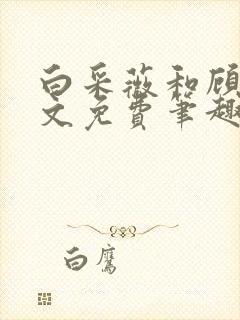 白采薇和顾
文免费笔趣
白鹰